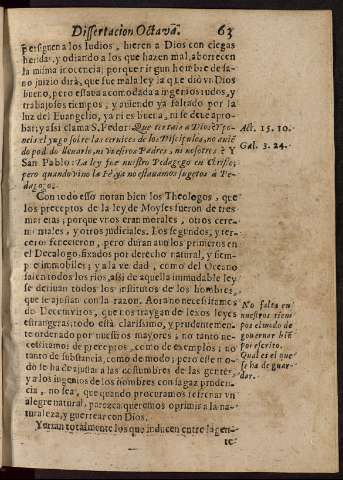 Dissertacion Octava. 63
persiguen a los Iudios, hieren a Dios con ciegas
heridas, y odiando a los que hazen mal, aborrecen
la misma inocencia; porque ningun hombre de sa-
no juizio dirà, que fue mala ley la que diò vn Dios
bueno, pero estava acomodada a ingenios rudos, y
trabajosos tiempos, y aviendo ya faltado por la
luz del Euangelio, ya ni es buena, ni se deve apro-
bar; y assi clama S. Pedro: Que tentais a Dios? Po-
neis el yugo sobre las cervices de los Discipulos, no aviē
do podido llevarlo, ni vuestros Padres, ni nosotros? Y
San Pablo: La ley fue nuestro Pedagogo en Christo;
pero quando vino la Fè, ya no estavamos sugetos à Pe-
dagogo.
Con todo esso notan bien los Theologos, que
los preceptos de la ley de Moyses fueron de tres
maneras; porque vnos eran morales, otros cere-
moniales, y otros judiciales. Los segundos, y ter-
ceros fenecieron, pero duran aun los primeros en
el Decalogo, fixados por derecho natural, y siem-
pre immobiles; y a la verdad, como del Oceano
salen todos los rios, assi de aquella immudable ley
se derivan todos los institutos de los hombres,
que se ajustan con la razon. Aora no necessitamos
de Decemviros, que nos traygan de lexos leyes
estrangeras; todo està clarissimo, y prudentemen-
te ordenado por nuestros mayores, no tanto ne-
cessitamos de preceptos, como de exemplos; no
tanto de substancia, como de modo; pero este mo-
do se ha de ajustar a las costumbres de las gentes,
y a los ingenios de los hombres con sagaz pruden-
cia, no sea, que quando procuramos refrenar vn
alegre natural, parezca queremos oprimir a la na-
turaleza, y guerrear con Dios.
Yerran totalmente los que inducen entre la gen-
te
Act. 15. 10.
Gal. 3. 24.
No falta en
nuestros tiem
pos el modo de
governar biē
por escrito.
Qual es el que
se ha de guar-
dar.